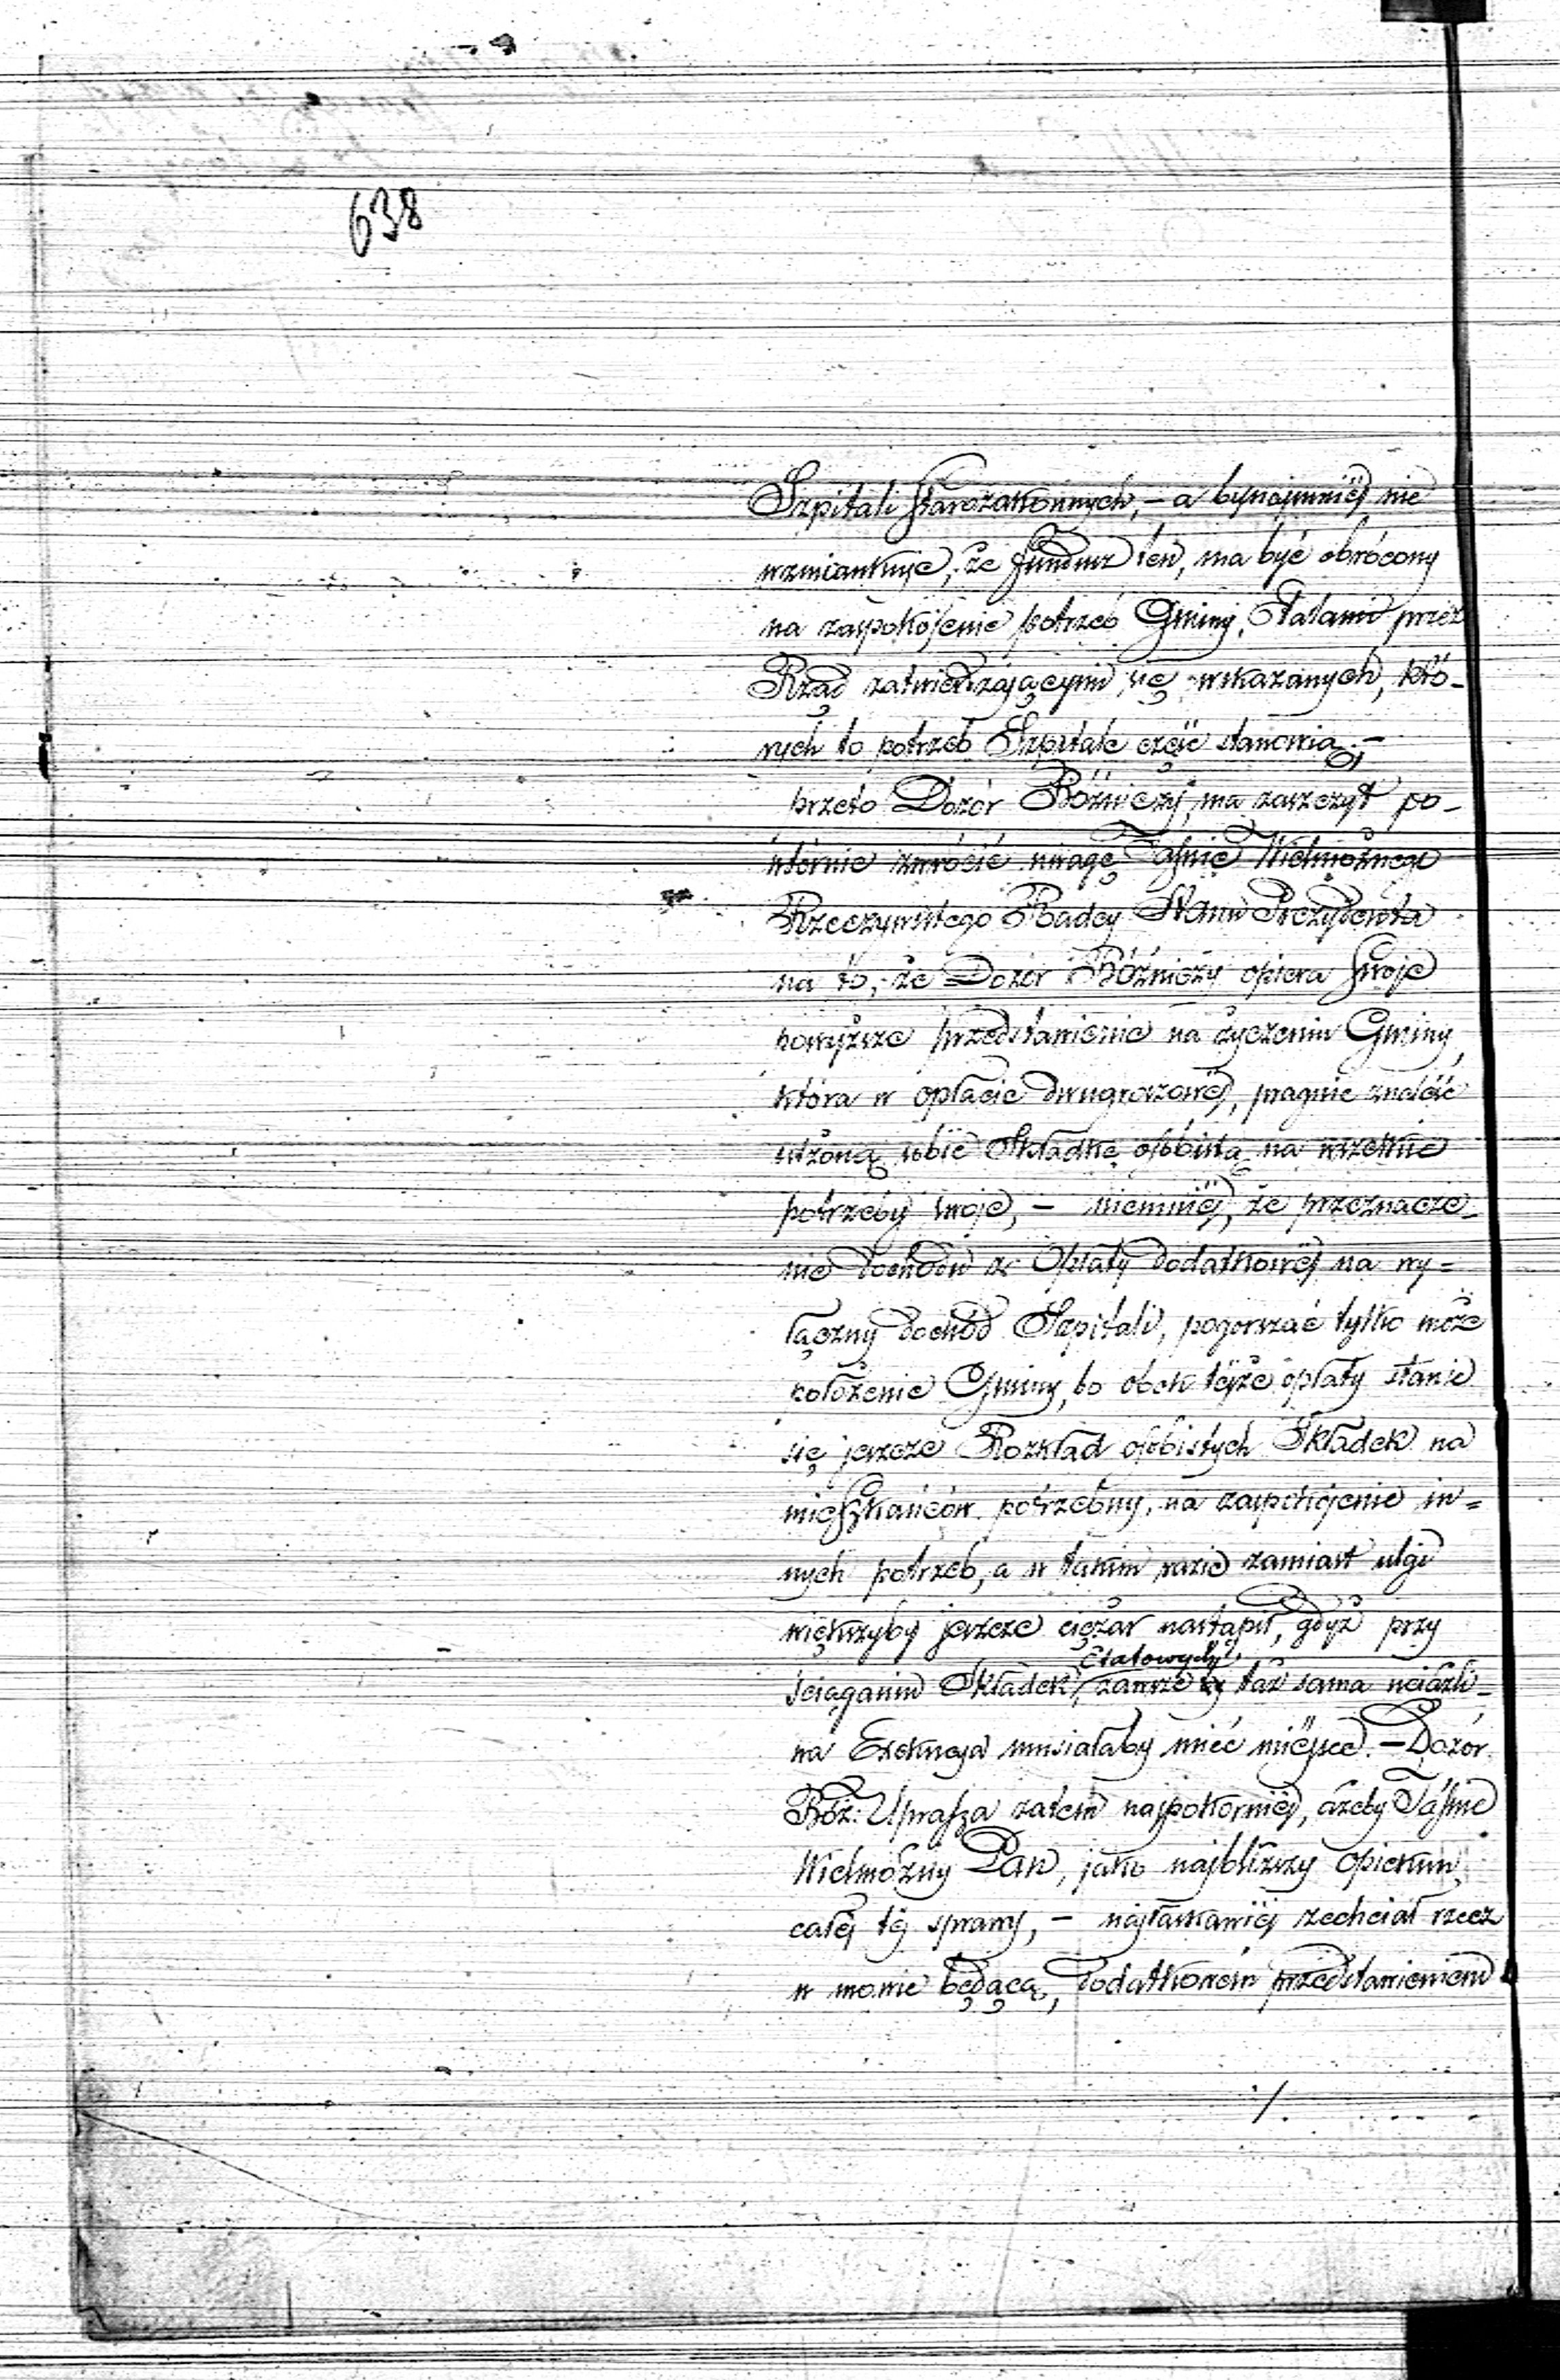 638
Szpitali Starozakonnych, – a bynajmniéj nie
wzmiankuje, że fundusz ten, ma być obrócony
na zaspokojenie potrzeb Gminy, Etatami przez
Rząd zatwierdzającymi się wskazanych, któ-
rych to potrzeb Szpitale część stanowią. –
przeto Dozór Bóżniczy, ma zaszczyt po-
wtórnie zwrócić uwagę Jaśnie Wielmożnego
Rzeczywistego Radcy Stanu Prezydenta
na to, że Dozór Bóżniczy opiera Swoje
powyższe przedstawienie na życzeniu Gminy,
która w opłacie dwugroszowéj, pragnie znaleść
ulżoną sobie Składkę osobistą na wszelkie
potrzeby swoje, – niemniéj, że przeznacze-
nie dochodu z Opłaty dodatkowéj na wy=
łączny dochód Szpitali, pogorszać tylko może
położenie Gminy, bo obok téjże opłaty stanie
się jeszcze Rozkład osobistych Składek na
mieszkańców potrzebny, na zaspokojenie in=
nych potrzeb, a w takim razie zamiast ulgi
większyby jeszcze ciężar nastąpił, gdyż przy
Etatowych,
ściąganiu Składek, zawsze taż sama uciążli-
wa Exekucja musiałaby mieć miéjsce. – Dozór
Bóż: Uprasza zatem najpokorniéj, ażeby Jaśnie
Wielmożny Pan, jako najbliższy opiekun,
całéj téj sprawy, – najłaskawiéj zechciał rzecz
w mowie będącą, dodatkowém przedstawieniem
./.